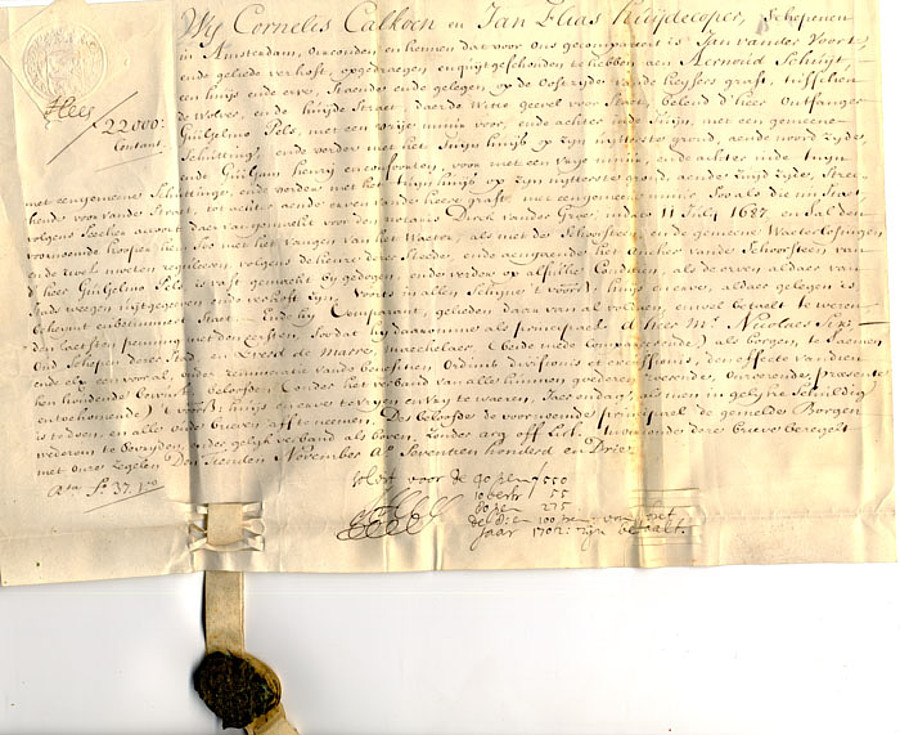 Wij Cornelis Calkoen en Jan Elias Huijdecoper, Schepenen
in Amsterdam, Oirconden en kennen dat voor Ons gecompareert is Jan vander Voort,
ende geliede verkoft, opgedraegen en quijtgeschonden te hebben aen Aernoud Schuijt,
een huijs ende erve, staende ende gelegen, op de Oostzijde vande Keijsers graft, tusschen
de Wolve, ende huijde Straet, daer de Witte gevel voor staet, belend d'heer Ontfanger
Guiljelmo Pels, met een vrije muur voor, ende achter inde tuijn, met een gemeene
Schutting, ende vorder met het tuijn huijs op zijn uytterste grond, aende noord zijde,
ende Guiljam henry voor met een vrije muur, ende achter inde tuijn
met een gemeene Schuttinge, ende vorder met het tuijn huijs op zijn uytterste grond, aende zuijd zijde, Strec-
kende voor vande Straet, tot achter aende erven vande heere graft, met een gemeene muur. Soo als die nu staet,
volgens seecker accoort daer van gemaeckt voor den notaris Dirck vander Groe, in dato 11 July 1687. en sal den
voornoemde kooper hem soo met het vangen van het Waeter, als met de Schoorsteen, en de gemeene Waeterlosingen
ende moeten reguleeren, volgens de keure deser Steede, ende aengaende het Ancker vande Schoorsteen van
d'heer Guiljelmo Pels, is vast gemaeckt bij gedogen, ende verder op alsulke Conditien, als de erven aldaer van
Stads weegen uijtgegeven ende verkoft sijn, Voorts in allen Schijne 't voors: huijs en erve, aldaer gelegen is,
betimmert Staet. Ende hij Comparant, geliede daer van al voldaen, en wel betaelt te weesen
den laetsten penning met den eersten, soo dat hij daeromme als principael d'heer Mr. Nicolaes Six,
Oud Schepen deser Stad, en Evert de Marre, maeckelaer, (beide mede Comparerende) als borgen, te saemen
ende elx een voor al, onder renuntiatie vande benefitien Ordinis divisionis et excussionis, den effecte van dien
hen houdende beloofde (onder het verband van alle hunnen goederen roerende, onroerende, presente
en toekomende) 't voors: huijs en erve te vrijen en vrij te waeren, Jaer en dag, als men in gelijke Schuldig
is te doen, en alle oude brieven aff te neemen. Des beloofde de voornoemde principael de gemelde Borgen
wederom te bevrijden, onder gelijk verband als boven, zonder arg off list. In oirconde dese brieve besegelt
met onse zegelen Den tienden November Ao. Seventien honderd en Drie
22000:
Contant.
37.
voor de 550
55
275
100 pen: van het
Jaar 1702: zijn betaalt.